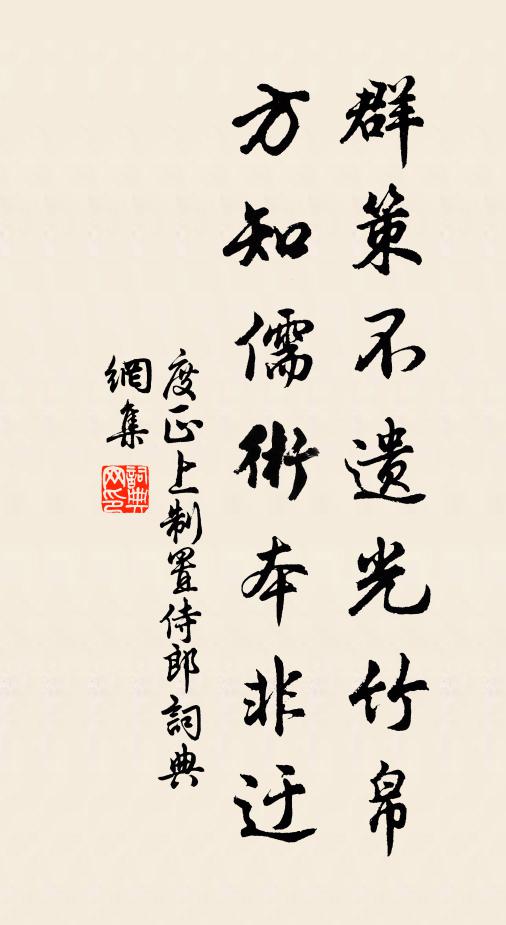 群策不遺光竹帛
方知儒術本非迂
度正上制置侍郎詞典
網集
詞典網印